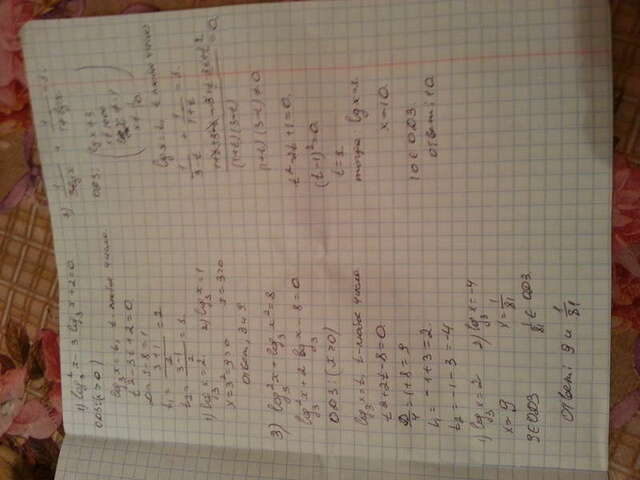 1) log₃²x - 3 log₃ x + 2 = 0
ОДЗ: (x > 0)
log₃ x = t, t - любое число
t² - 3t + 2 = 0
t₁ = (3+1)/2 = 2
t₂ = (3-1)/2 = 1.
1) log₃ x = 2. 2) log₃ x = 1
x = 3² = 9 > 0 x = 3 > 0
Ответ: 9 и 3
3) log₃²x + log₃ x² = 8
log₃² x + 2 log₃ x - 8 = 0.
ОДЗ: (x > 0)
log₃ x = t, t - любое число
t² + 2t - 8 = 0.
D/4 = 1 + 8 = 9
t₁ = -1 + 3 = 2.
t₂ = -1 - 3 = -4
1) log₃ x = 2 2) log₃ x = -4
x = 9 x = 1/81
9 ∈ ОДЗ 1/81 ∈ ОДЗ.
Ответ: 9 и 1/81
ОДЗ: lg x ≠ 3
lg x = t, t любое число
1/(3-t) + 1/(1+t) = 1.
(1+t)(3-t)
(1+t)(3-t) ≠ 0
t² - 2t + 1 = 0.
(t - 1)² = 0.
t = 1.
тогда: lg x = 1.
x = 10.
10 ∈ ОДЗ.
Ответ: 10.